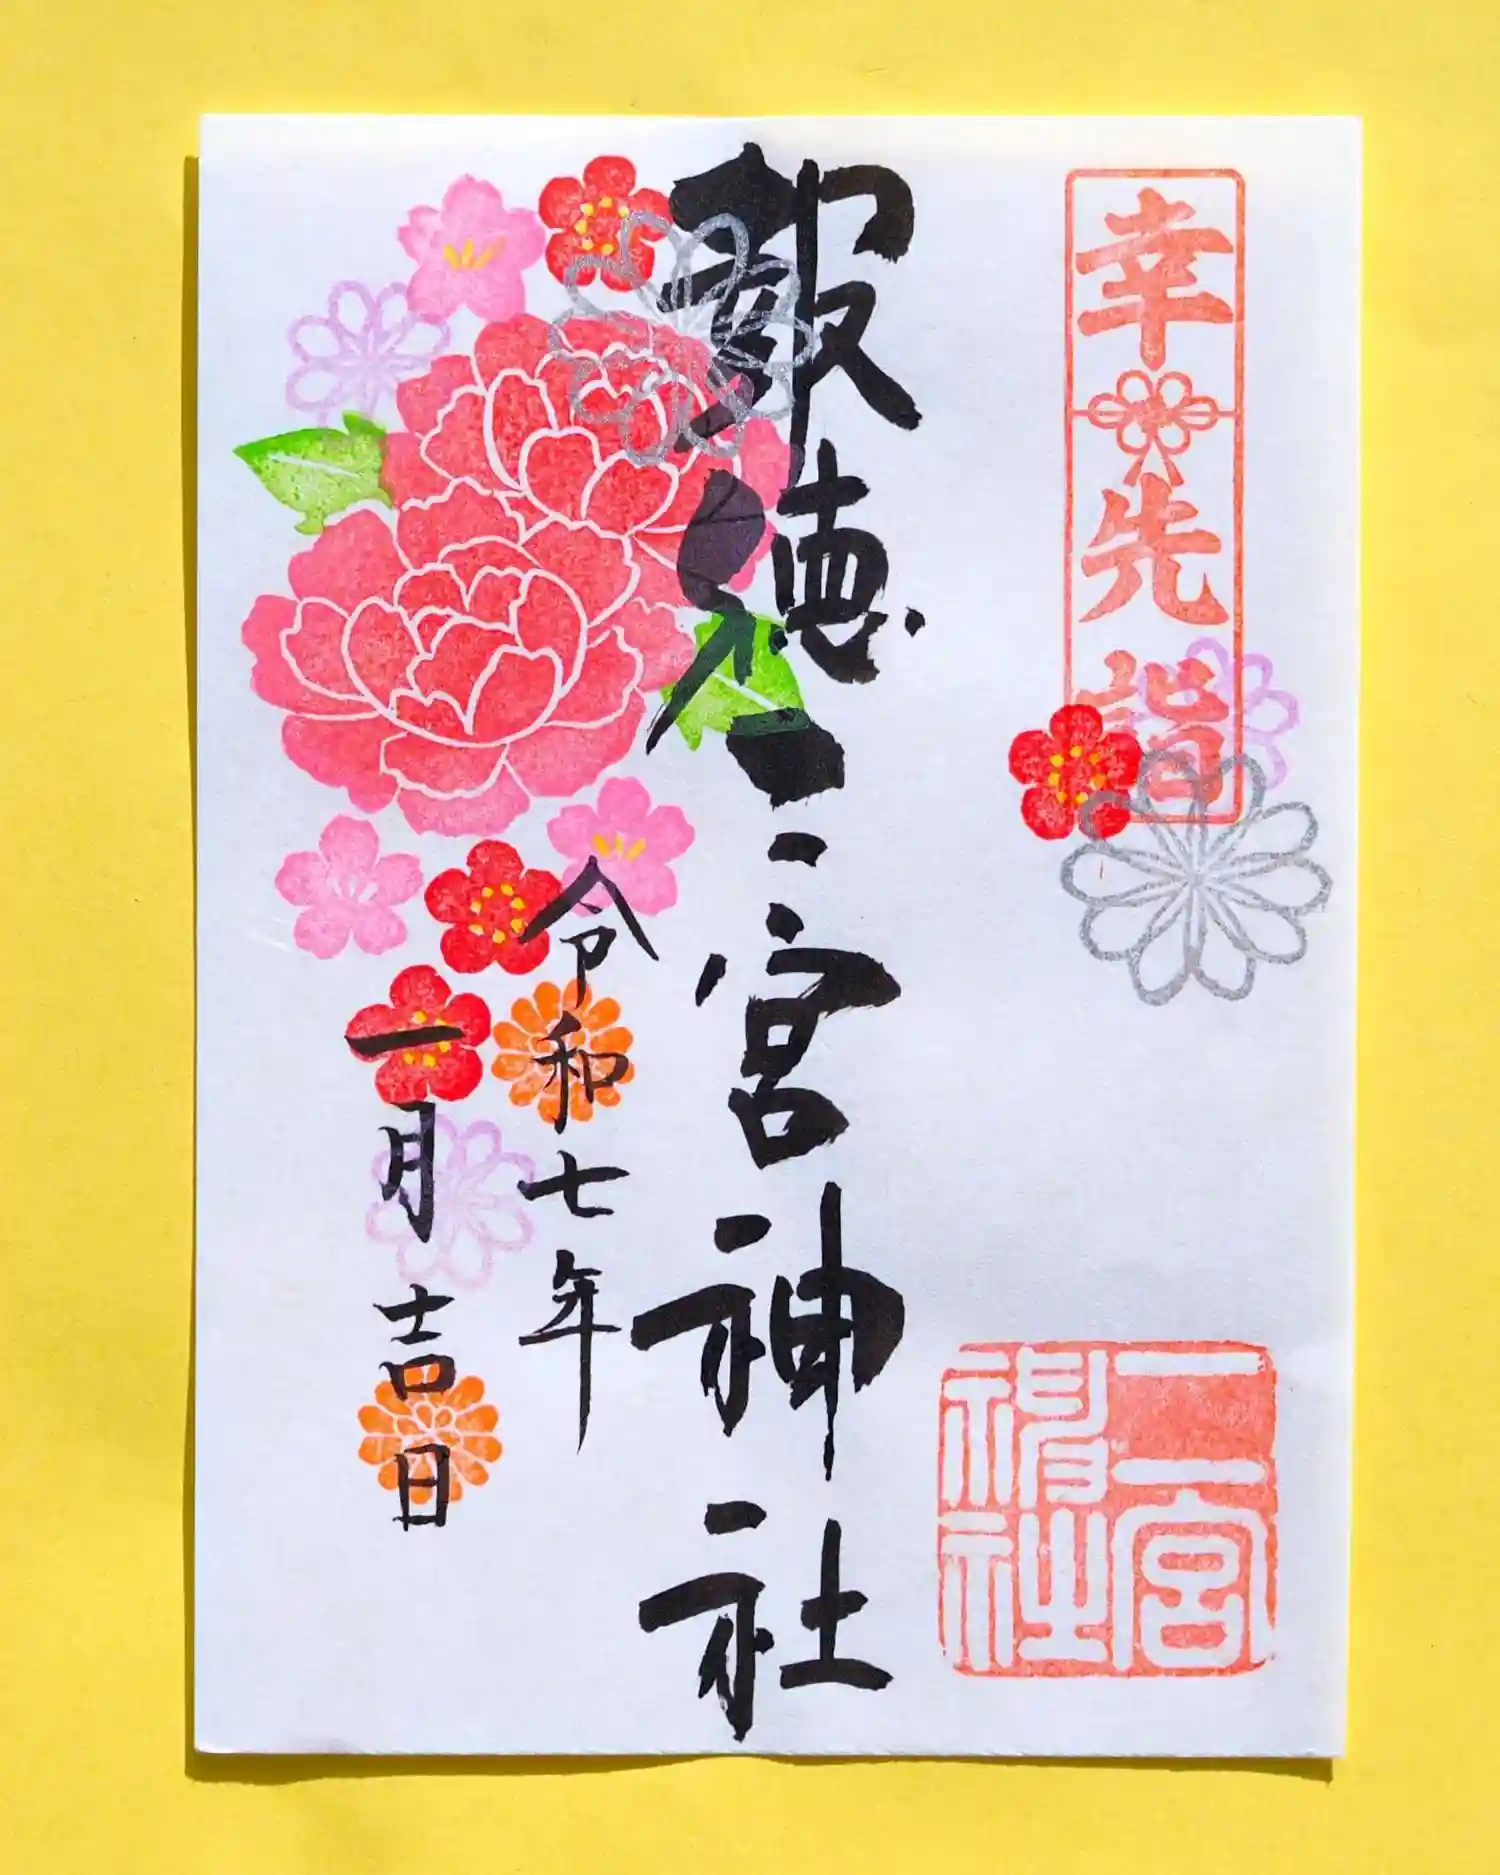 幸先詣
二宮
神社
報徳二宮神社
令和七年
一月吉日